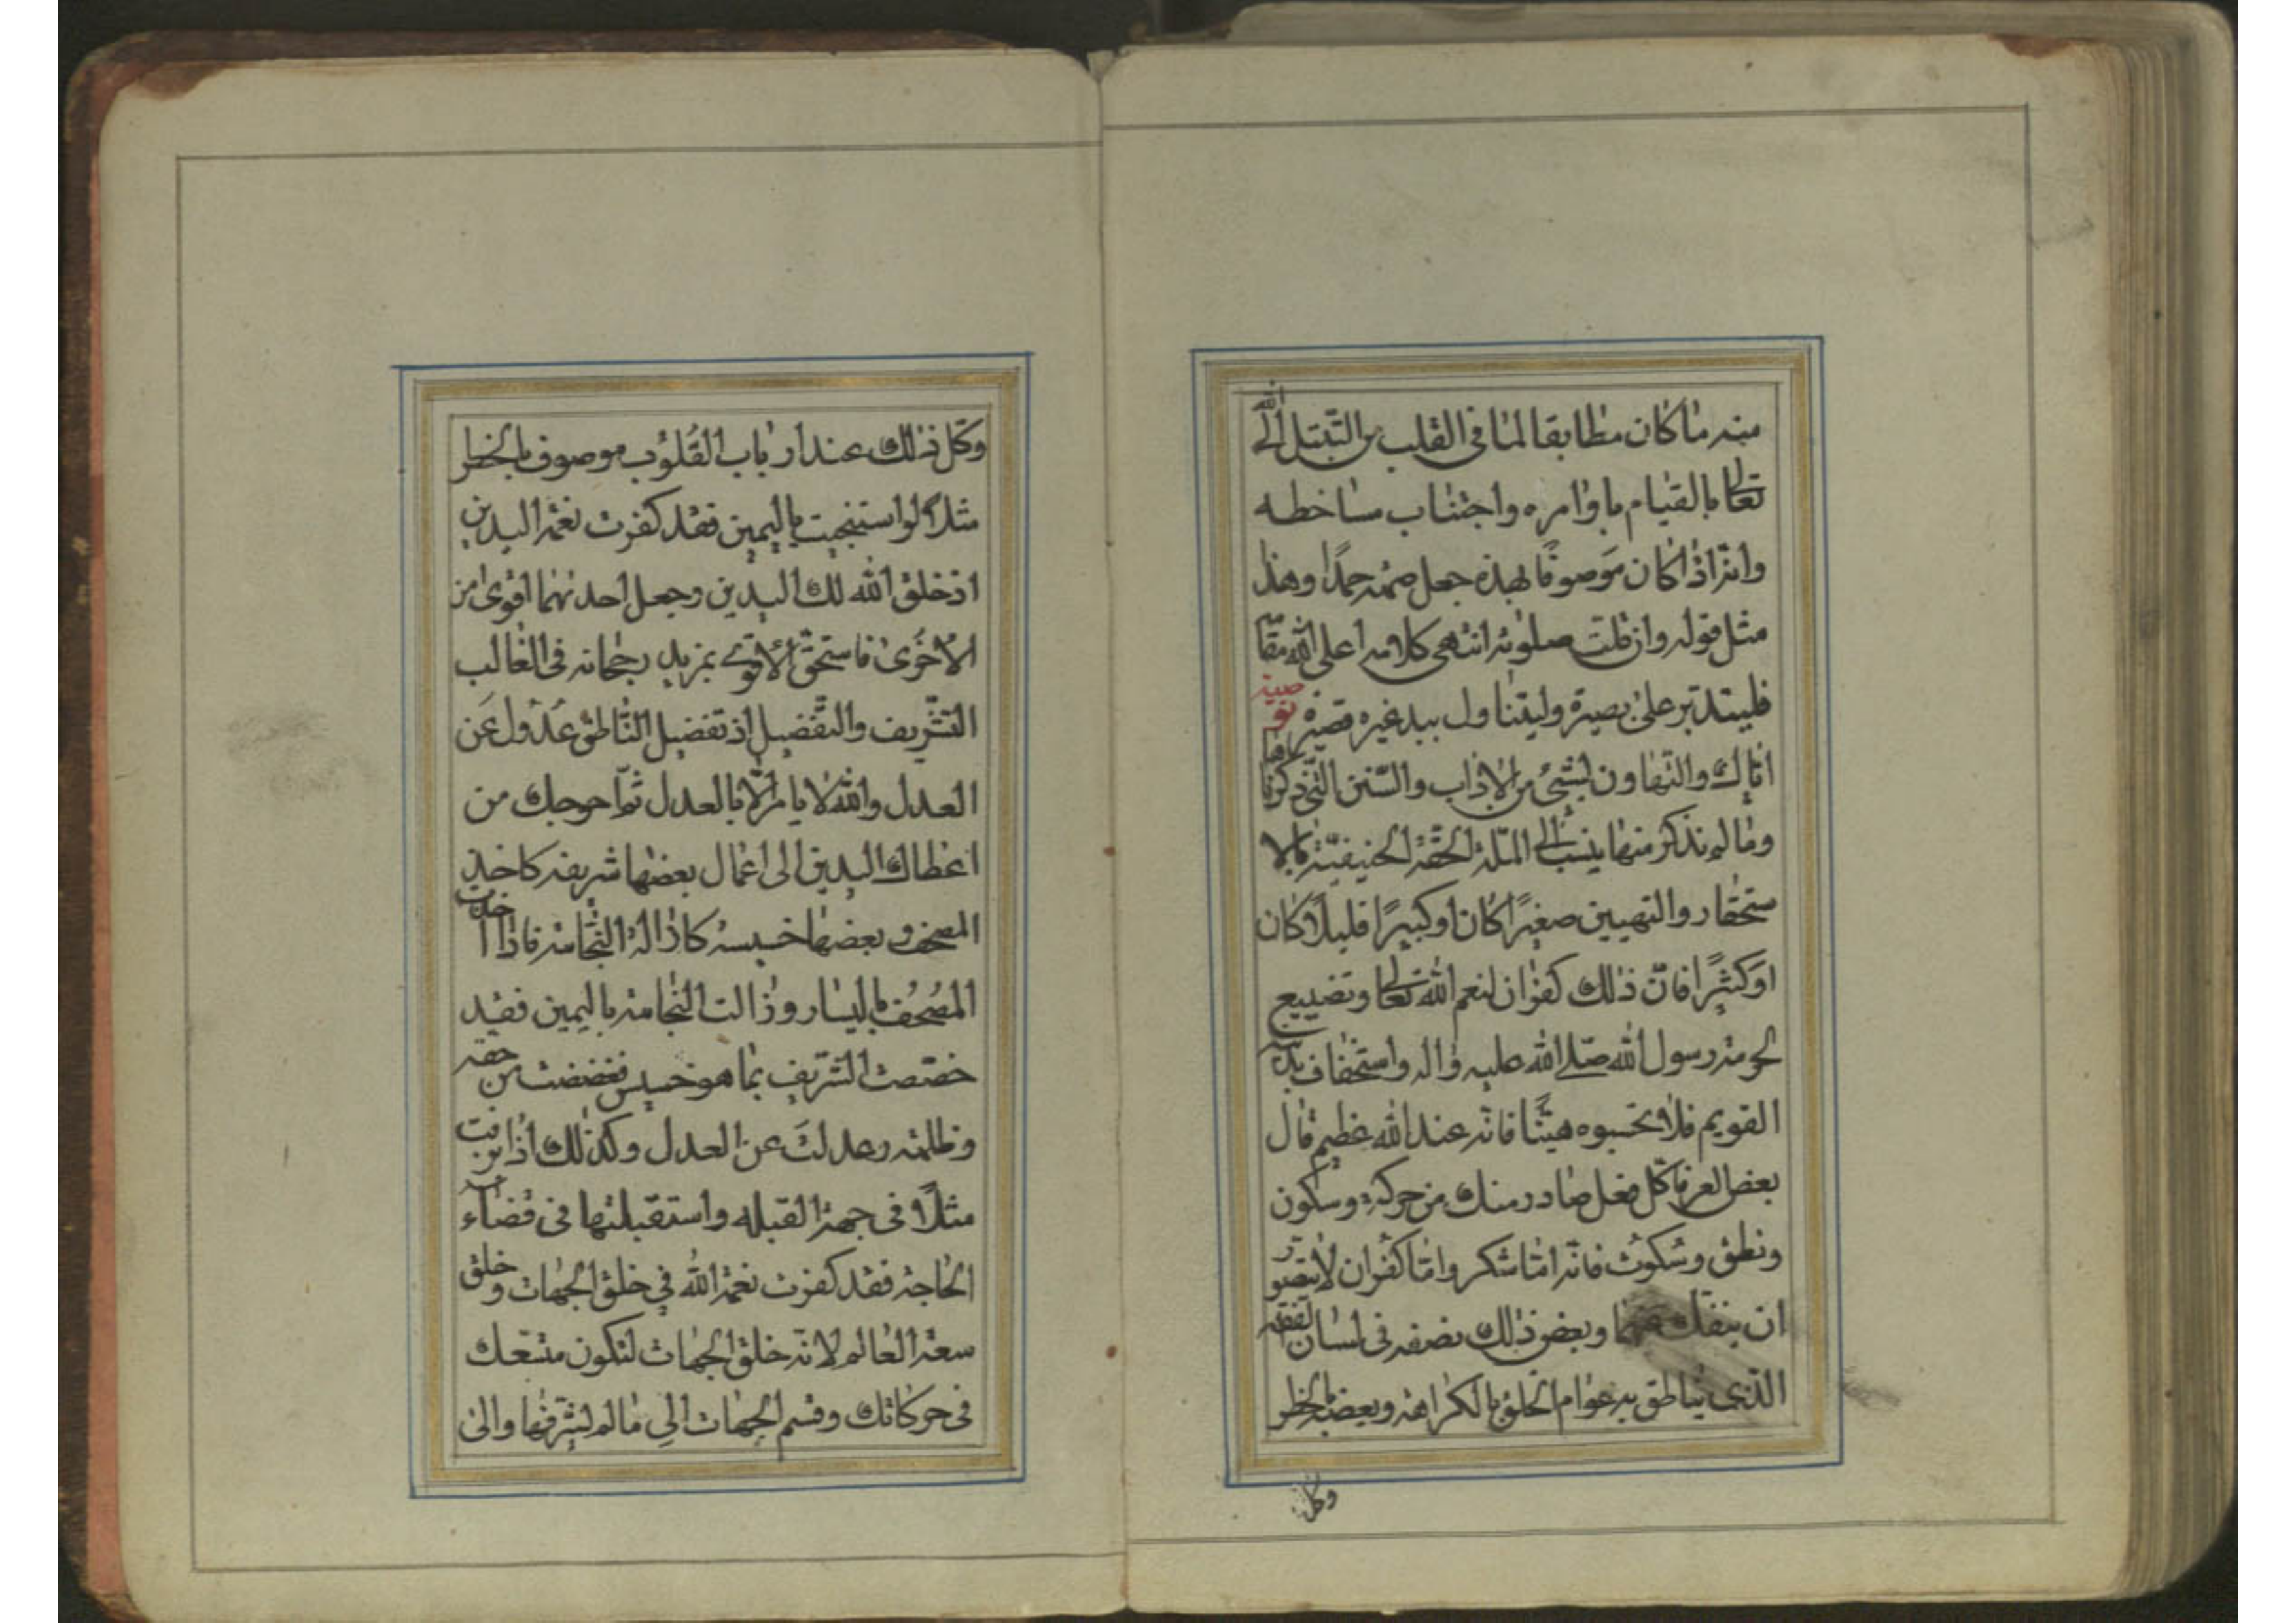 منه ما كان مطابقا لما فى القلب من التبتل الى الله
تعالى بالقيام باوامره واجتناب مساخطه
وانه اذا كان موصوفا بهذه جعل صمته حمدًا وهذا
مثل قوله وان قلت صلوته انتهى كلامه اعلى الله مقا
فليتدبر على بصيرة وليتناول بيد غيره قصيرة توصية
اياك والتهاون بشئ من الاداب والسنن التى ذكرناها
وما لم نذكر منها ينسب الى الملة الحقة الحنيفية بالا
ستحقار والتهيين صغيرًا كان او كبيرًا قليلًا كان
او كثيرًا فان ذلك كفران لنعم الله تعالى وتضييع
لحرمة رسول الله صلى الله عليه واله واستخفاف بدينه
القويم فلا تحسبوه هينًا فانه عند الله عظيم قال
بعض العرفا كل فعل صادر منك من حركة وسكون
ونطق وسكوت فانه اما شكر واما كفران لا يتصور
ان ينفك عنهما وبعض ذلك نصفه فى لسان الفقه
الذى يناطق به عوام الخلق بالكراهة وبعضه بالخطر
وكل
وكل ذلك عند ارباب القلوب موصوف بالخطر
مثلا لو استنجيت باليمين فقد كفرت نعمة اليدين
اذ خلق الله لك اليدين وجعل احديهما اقوى من
الاخرى فاستحق الاقوى بمزيد رجحانه فى الغالب
التشريف والتفضيل اذ تفضيل الناطق عدول عن
العدل والله لا يامر الا بالعدل ثم احوجك من
اعطاك اليدين الى اعمال بعضها شريفه كاخذ
المصحف وبعضها خسيسه كازالة النجاسة فاذا اخذت
المصحف باليسار وزالت النجاسة باليمين فقد
خصصت الشريف بما هو خسيس فغضضت من حقه
وظلمته وعدلت عن العدل وكذلك اذا بزقت
مثلًا فى جهة القبله واستقبلتها فى قضاء
الحاجة فقد كفرت نعمة الله في خلق الجهات وخلق
سعة العالم لانه خلق الجهات لتكون متسعك
فى حركاتك وقسم الجهات الي ما لم يشرفها والى